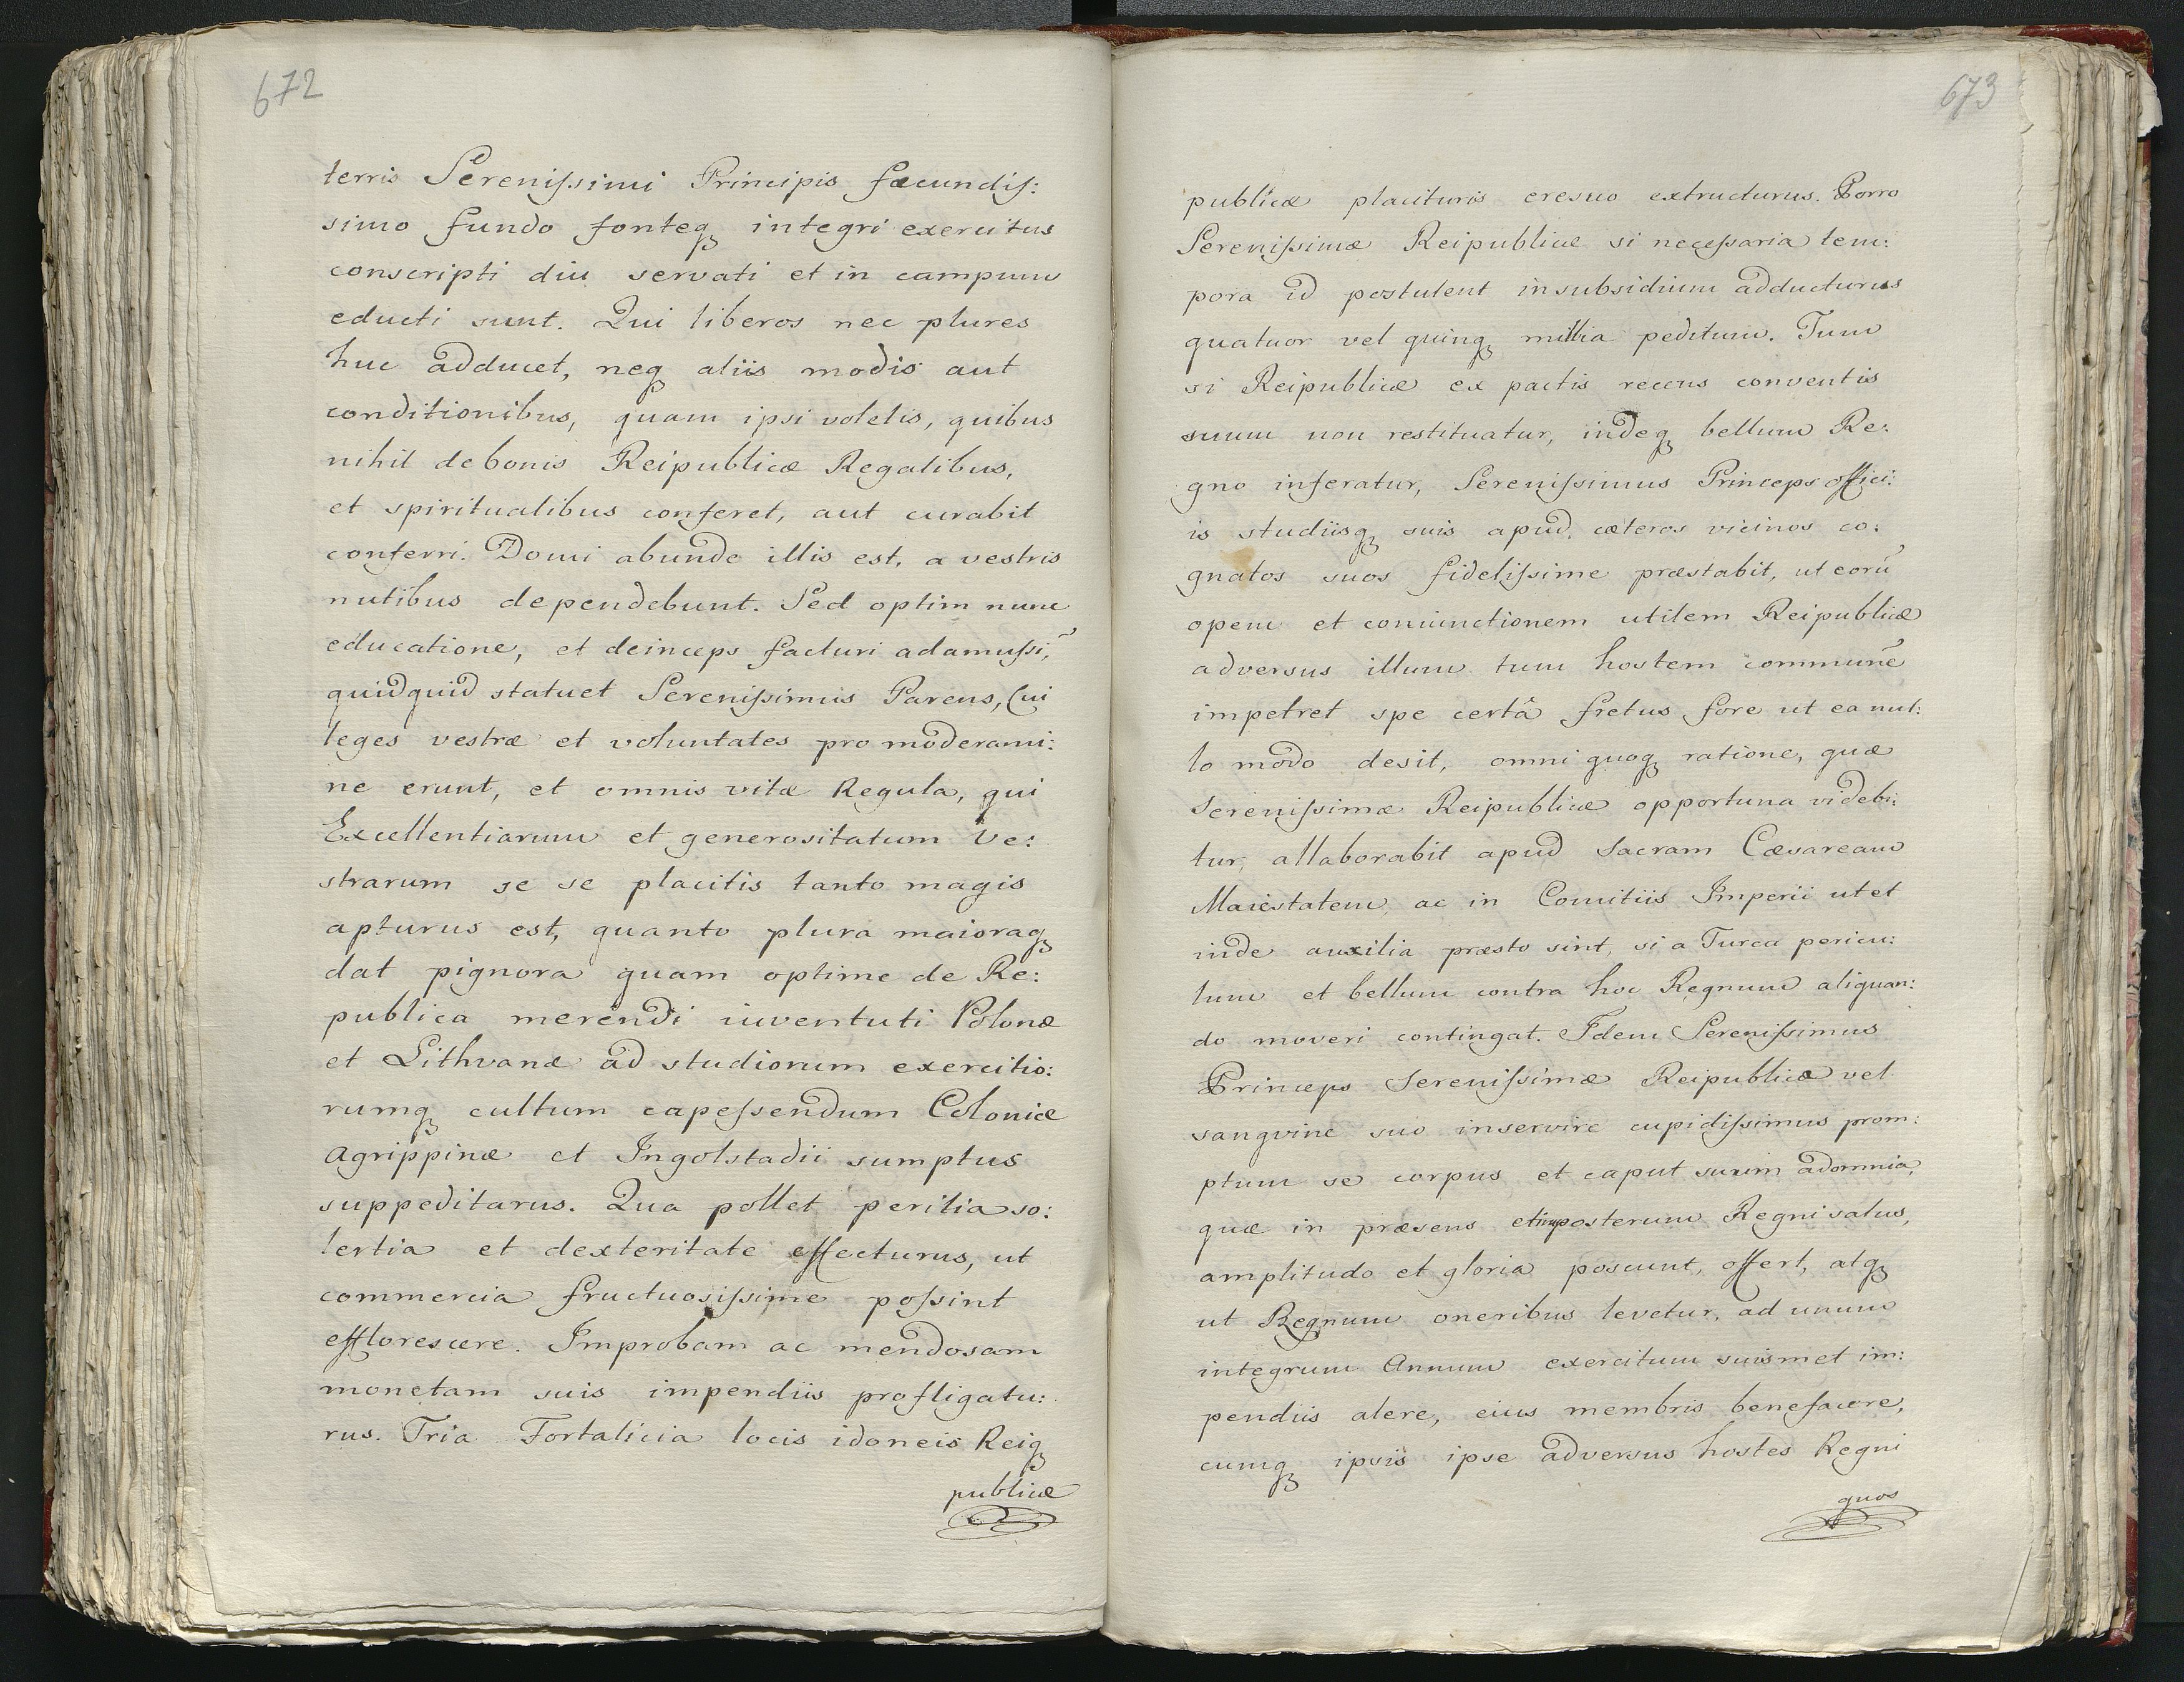 672
terris Serenissimi Principis fæcundis:
simo fundo fonteq́; integri exercitus
conscripti diu servati et in campum
educti sunt. Qui liberos nec plures
huc adducet, neq́; aliis modis aut
conditionibus, quam ipsi voletis, quibus
nihil de bonis Reipublicæ Regalibus,
et spiritualibus conferet, aut curabit
conferri. Domi abunde illis est, a vestris
nutibus dependebunt. Sed optim nunc
educatione, et deinceps facturi adamussĩ,
quidquid statuet Serenissimus Parens, Cui
leges vestræ et voluntates pro moderami:
ne erunt, et omnis vitæ Regula, qui
Excellentiarum et generositatum Ve:
strarum se se placitis tanto magis
apturus est, quanto plura maioraq;
dat pignora quam optime de Re:
publica merendi iuventuti Polonæ
et Lithvanæ ad studiorum exercitio:
rumq; cultum capessendum Coloniæ
Agrippinæ et Ingolstadii sumptus
suppeditarus. Qua pollet peritia so:
lertia et dexteritate effecturus, ut
commercia fructuosissime possint
efflorescere. Improbam ac mendosam
monetam suis impendiis profligatu:
rus. Tria Fortalicia locis idoneis Reiq;
publicæ
673
publicæ placituris eresuo extructurus. Porro
Serenissimæ Reipublicæ si necessaria tem:
pora id postulent in subsidium adducturus
quatuor vel quinq; millia peditum. Tum
si Reipublicæ ex pactis recens conventis
suum non restituatur, indeq; bellum Re:
gno inferatur, Serenissimus Princeps offici:
is studiisq; suis apud cæteros vicinos co:
gnatos suos fidelissime præstabit, ut eorũ
opem et coniunctionem utilem Reipublicæ
adversus illum tum hostem communẽ
impetret spe certâ fretus fore ut ea nul:
lo modo desit, omni quoq; ratione, quæ
Serenissimæ Reipublicæ opportuna videbi:
tur, allaborabit apud Sacram Cæsaream
Maiestatem, ac in Comitiis Imperii ut et
inde auxilia præsto sint, si a Turca pericu:
lum et bellum contra hoc Regnum aliquan:
do moveri contingat. Idem Serenissimus
Princeps Serenissimæ Reipublicæ vel
sangvine suo inservire cupidissimus prom:
ptum se corpus et caput suum ad omnia,
quæ in præsens et in posterum Regni salus,
amplitudo et gloria poscunt, offert, atq;
ut Regnum oneribus levetur, ad unum
integrum Annum exercitum suismet im:
pendiis alere, eius membris benefacere,
cumq; ipsis ipse adversus hostes Regni
quos